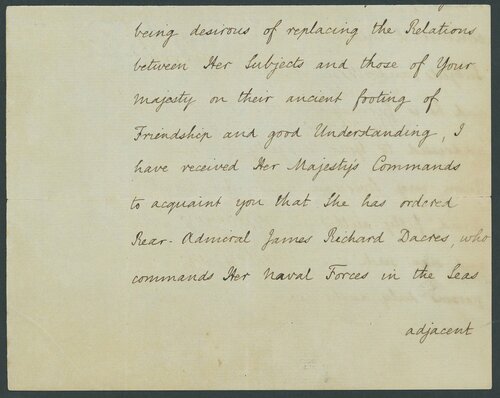 being desirous of replacing the Relations
between Her Subjects and those of Your
Majesty on their ancient footing of
Friendship and good Understanding, I
have received Her Majesty's Commands
to acquaint you that She has ordered
Rear-Admiral James Richard Dacres, who
commands Her Naval Forces in the Seas
adjacent